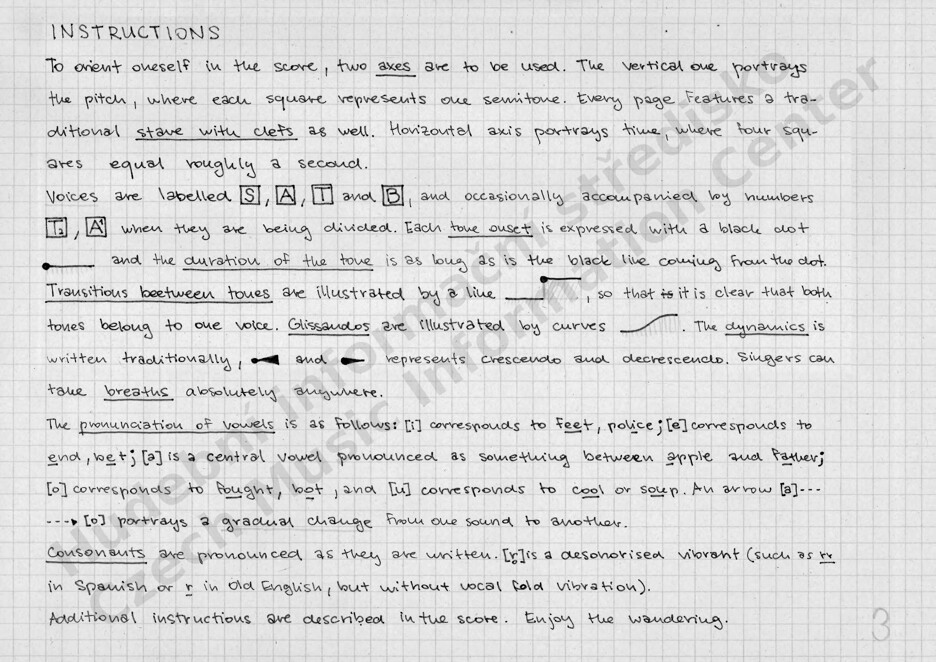 INSTRUCTIONS
To orient oneself in the score, two axes are to be used. The vertical one portrays
the pitch, where each square represents one semitone. Every page features a tra-
ditional stave with clefs as well. Horizontal axis portrays time, where four squ-
ares equal roughly a second.
Voices are labelled S, A, T and B, and occasionally accompanied by numbers
T₂, A¹ when they are being divided. Each tone onset is expressed with a black dot
and the duration of the tone is as long as is the black line coming from the dot.
Transitions beetween tones are illustrated by a line , so that is it is clear that both
tones belong to one voice. Glissandos are illustrated by curves . The dynamics is
written traditionally, and represents crescendo and decrescendo. Singers can
take breaths absolutely anywhere.
The pronunciation of vowels is as follows: [i] corresponds to feet, police; [e] corresponds to
end, bet; [a] is a central vowel pronounced as something between apple and father;
[o] corresponds to fought, bot, and [u] corresponds to cool or soup. An arrow [a]---
---▸ [o] portrays a gradual change from one sound to another.
Consonants are pronounced as they are written. [r̥] is a desonorised vibrant (such as rr
in Spanish or r in Old English, but without vocal fold vibration).
Additional instructions are described in the score. Enjoy the wandering.
3
Hudební informační středisko
Czech Music Information Center